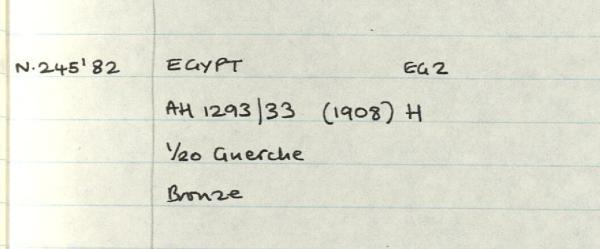 N.245'82 EGYPT EG2
AH 1293/33 (1908) H
1/20 Guerche
Bronze